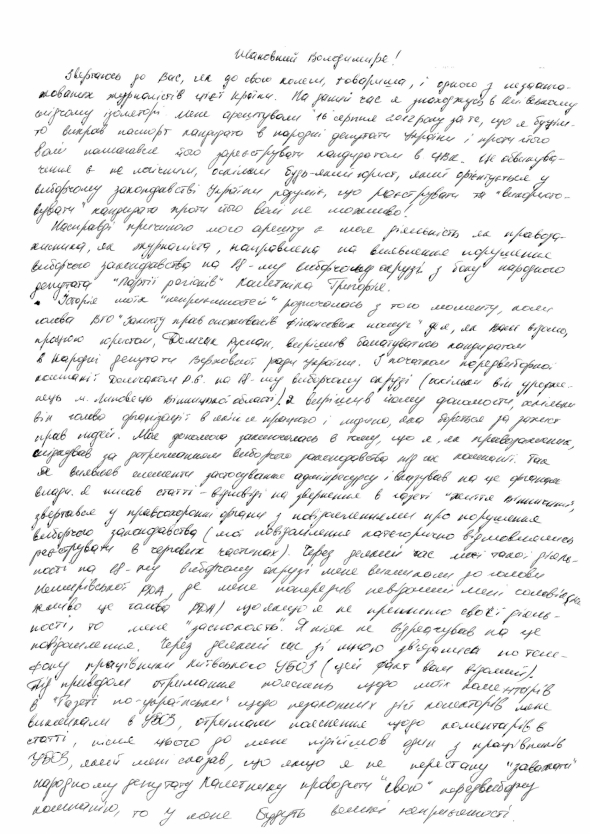 Шановний Володимире!
Звертаюсь до Вас, як до свого колеги, товариша, і одного з незаанга-
жованих журналістів цієї країни. На даний час я знаходжусь в Київському
слідчому ізоляторі мене арештували 16 серпня 2012 року за те, що я буцім-
то викрав паспорт кандидата в народні депутати України і проти його
волі намагався його зареєструвати кандидатом в ЦВК. Це обвинува-
чення є не логічним, оскільки будь-який юрист, який орієнтується у
виборчому законодавстві України розуміє, що реєструвати та "використо-
вувати" кандидата проти його волі не можливо!
Насправді причиною мого арешту є моя діяльність як правоза-
хисника, як журналіста, направлена на виявлення порушення
виборчого законодавства на 18-му виборчому окрузі з боку народного
депутата "Партії регіонів" Калетніка Григорія.
Історія моїх "неприємностей" розпочалась з того моменту, коли
голова ВГО "Захисту прав споживачів фінансових послуг" де я, як Вам відомо,
працюю юристом, Домчак Руслан, вирішив балотуватись кандидатом
в народні депутати Верховної ради України. З початком передвиборної
кампанії Домчаком Р.В. на 18-му виборчому окрузі (оскільки він уродже-
нець м. Липовець Вінницької області) я вирішив йому допомогти, оскільки
він голова організації в якій я працюю і людина, яка бореться за захист
прав людей. Моя допомога заключалась в тому, що я, як правозахисник,
слідкував за дотриманням виборчого законодавства під час кампанії. Так
я виявляв елементи застосування адмінресурсу і вказував на це органам
влади. Я писав статті - відповіді на звернення в газеті "Життя Вінничини",
звертався у правоохоронні органи з повідомленнями про порушення
виборчого законодавства (мої повідомлення категорично відмовлялись
реєструвати в чергових частинах). Через деякий час моєї такої діяль-
ності на 18-му виборчому окрузі мене викликали до голови
РДА, де мене попередив невідомий мені чоловік
це голова РДА) що якщо я не припиню своєї діяль-
ності, то мене "заспокоять". Я ніяк не відреагував на це
повідомлення. Через деякий час зі мною зв'язались по теле-
фону працівники Київського УБОЗ (цей факт вам відомий).
Під приводом отримання пояснень щодо моїх коментарів
в "Газеті по-українськи" щодо незаконних дій колекторів мене
викликали в УБОЗ, отримали пояснення щодо коментарів в
статті, після цього до мене підійшов один з працівників
УБОЗ, який мені сказав, що якщо я не перестану "заважати"
народному депутату Калетніку проводити "свою" передвиборчу
кампанію, то у мене будуть великі неприємності.